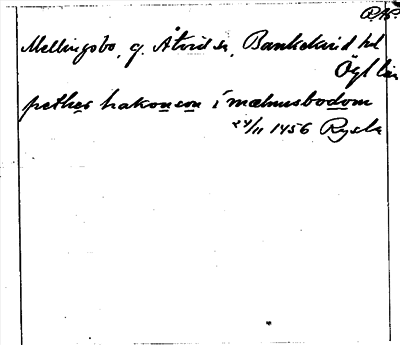 Mellingsbo, g. Åtvid sn, Bankekind hd
Ögl län
pether hakonson i mælnusbodom
24/11 1456 Rysk